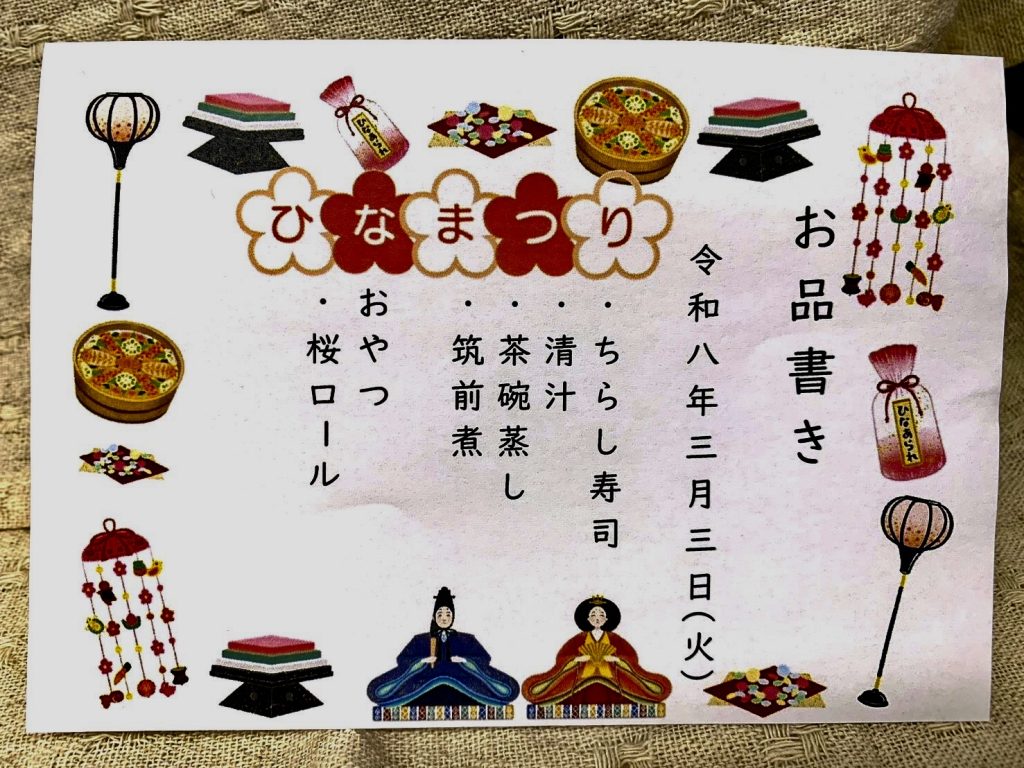 お品書き
令和八年三月三日(火)
ひなまつり
・ちらし寿司
・清汁
・茶碗蒸し
・筑前煮
おやつ
・桜ロール
ひなあられ
ひなあられ